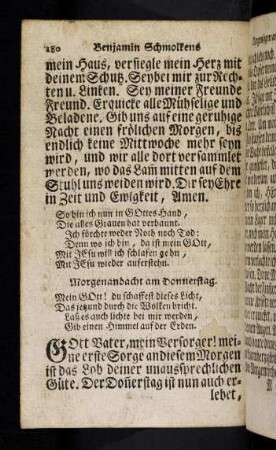 180 Benjamin Schmolkens
mein Haus, versiegle mein Herz mit
deinem Schutz. Sey bei mir zur Rech-
ten u. Linken. Sey meiner Freunde
Freund. Erquicke alle Mühselige und
Beladene, Gib uns auf eine geruhige
Nacht einen frölichen Morgen, bis
endlich keine Mittwoche mehr seyn
wird, und wir alle dort versammlet
werden, wo das Lam̃ mitten auf dem
Stuhl uns weiden wird. Dir sey Ehre
in Zeit und Ewigkeit, Amen.
So bin ich nun in GOttes Hand,
Die alles Grauen hat verbannt.
Ich förchte weder Noth noch Tod:
Denn wo ich bin, da ist mein GOtt,
Mit JEsu will ich schlafen gehn,
Mit JEsu wieder auferstehn.
Morgenandacht am Donnerstag.
Mein GOtt! du schaffest dieses Licht,
Das jetzund durch die Wolken bricht.
Laß es auch lichte bei mir werden,
Gib einen Himmel auf der Erden.
GOtt Vater, mein Versorger! mei-
ne erste Sorge an diesem Morgen
ist das Lob deiner unaussprechlichen
Güte. Der Don̄erstag ist nun auch er-
lebet,